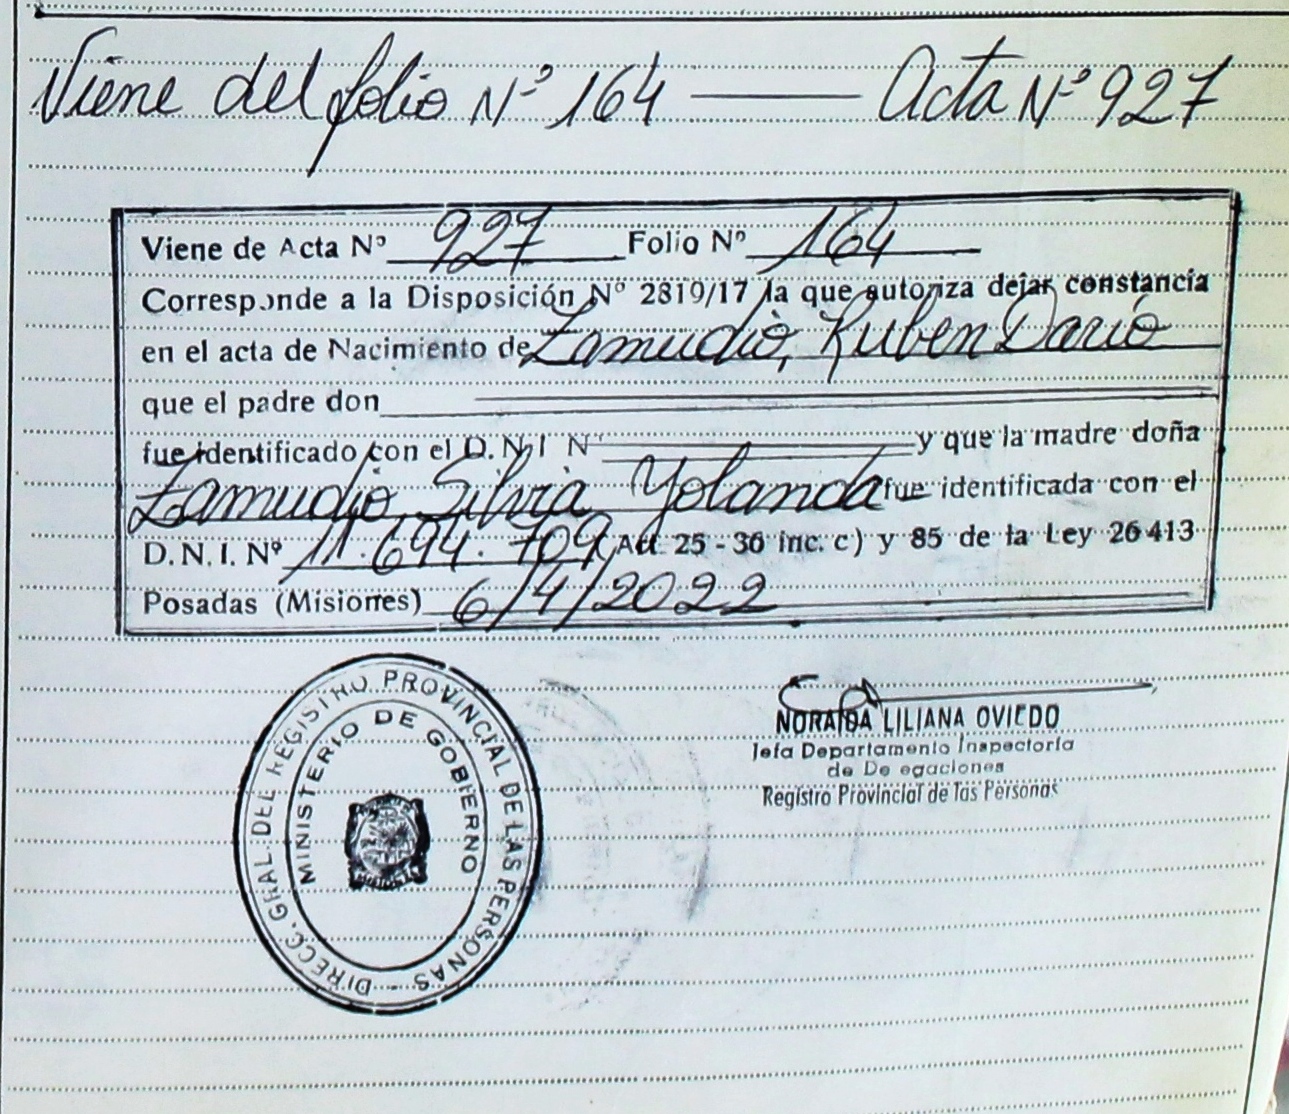 Viene del folio Nº 164 —— Acta Nº 927
Viene de Acta Nº 927 Folio Nº 164
Corresponde a la Disposición Nº 2819/17 la que autoriza dejar constancia
en el acta de Nacimiento de Zamudio, Ruben Dario
que el padre don
fue identificado con el D.N.I Nº y que la madre doña
Zamudio, Silvia Yolanda fue identificada con el
D.N.I. Nº 11.694.709 (Art. 25 - 36 inc. c) y 85 de la Ley 26413
Posadas (Misiones) 6/4/2022
DIRECC. GRAL. DEL REGISTRO PROVINCIAL DE LAS PERSONAS
MINISTERIO DE GOBIERNO
NORAIDA LILIANA OVIEDO
Jefa Departamento Inspectoria
de De egaciones
Registro Provincial de las Personas